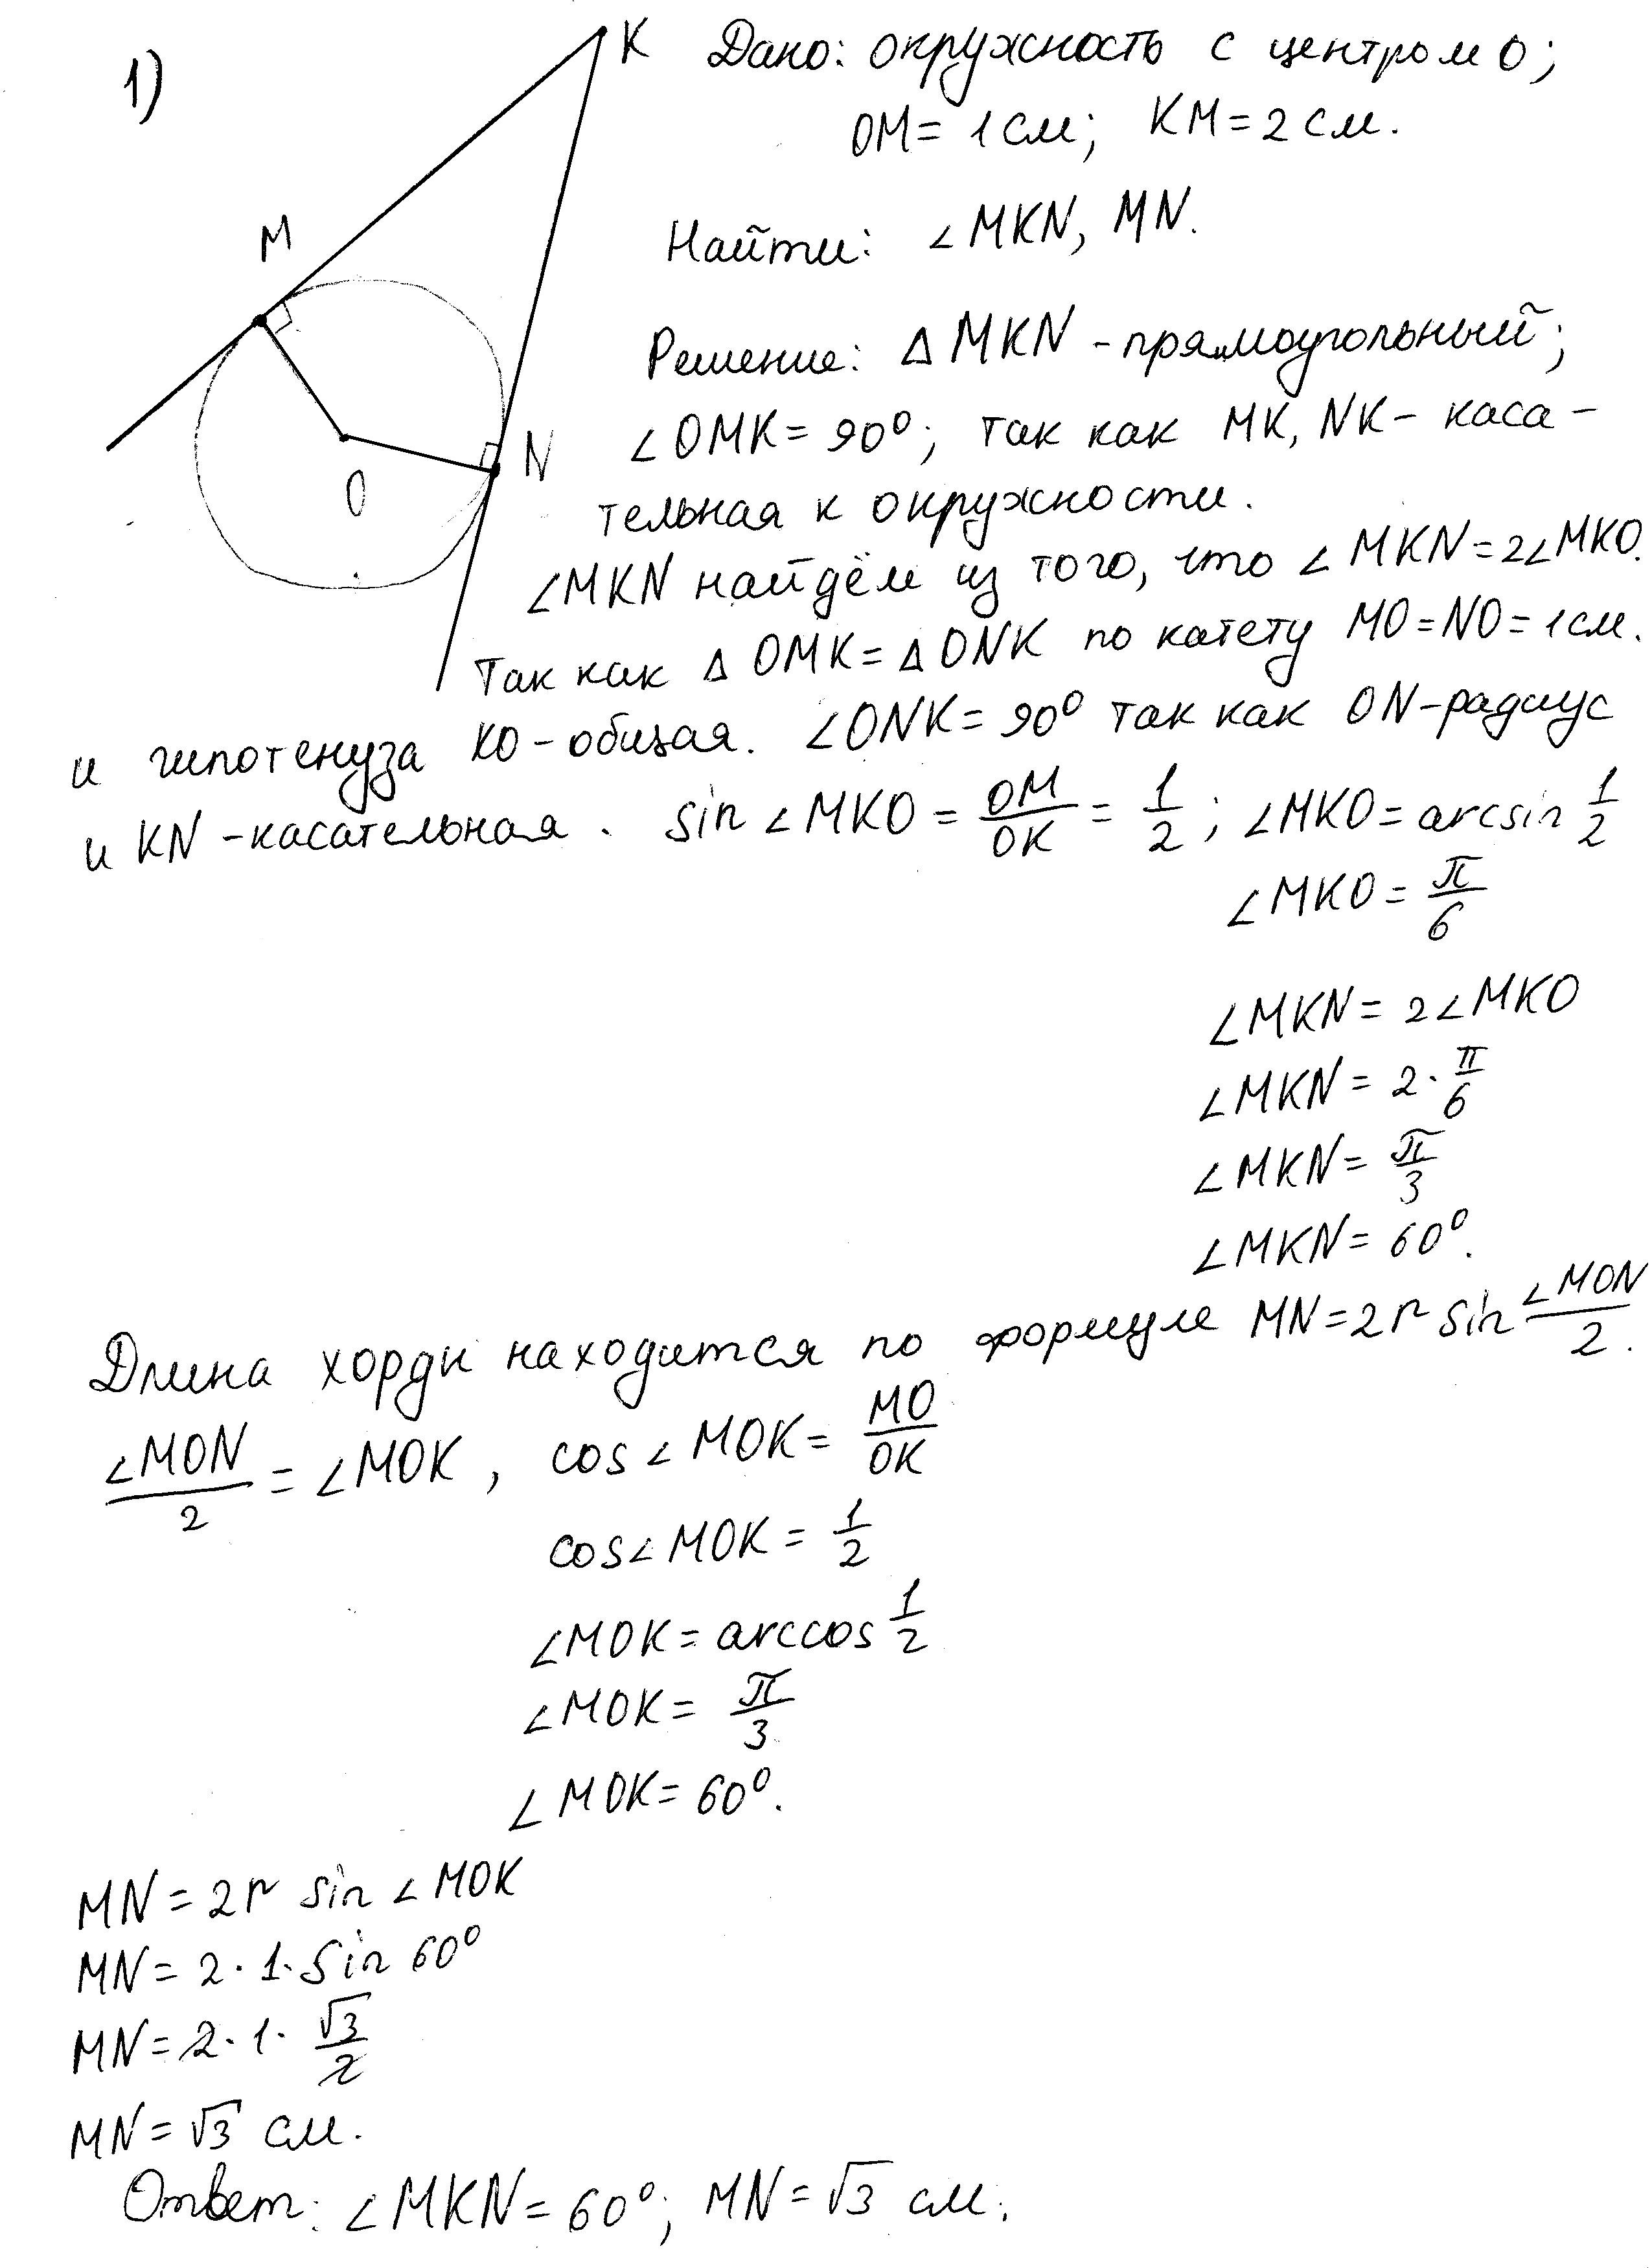 1)
K
Дано: окружность с центром O;
OM = 1 см; KM = 2 см.
M
Найти: ∠MKN, MN.
Решение: △MKN - прямоугольный;
∠OMK = 90°; так как MK, NK - каса-
N
O
тельная к окружности.
∠MKN найдём из того, что ∠MKN = 2∠MKO.
Так как △OMK = △ONK по катету MO = NO = 1 см.
и гипотенуза KO - общая. ∠ONK = 90° так как ON - радиус
и KN - касательная. sin∠MKO = OM/OK = 1/2; ∠MKO = arcsin 1/2
∠MKO = π/6
∠MKN = 2∠MKO
∠MKN = 2 · π/6
∠MKN = π/3
∠MKN = 60°.
Длина хорды находится по формуле MN = 2r sin ∠MON/2.
∠MON/2 = ∠MOK, cos∠MOK = MO/OK
cos∠MOK = 1/2
∠MOK = arccos 1/2
∠MOK = π/3
∠MOK = 60°.
MN = 2r sin∠MOK
MN = 2 · 1 · sin 60°
MN = 2 · 1 · √3/2
MN = √3 см.
Ответ: ∠MKN = 60°; MN = √3 см.